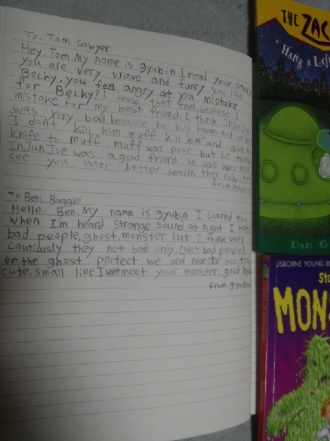 To. Tom Sawyer
Hey, Tom My name is gyubin I read your story
you are very vrave and funny you like
Becky. you feel angry at you mistake
for Becky! I know that feel because I
mistake for my best friend. I think InJun Joe
was very bad. because he kill human and give
I don't kill him muff kill him and give a
knife to muff. muff was poor but he think
InJun Joe was a good friend he was very nice
see you later better health than now bye
from gyubin
To Ben Buggle
Hello Ben. My name is gyubin I scared too
when I'm heard strange sound at night I
bad people, ghost, monster but I think very
cautiously they not bad only. (just bad people)
or the ghost protect we and monster
cute, small like I want meet your monster good bye
from gyubin
THE ZAC
Dan G
USBORNE YOUNG RE
Sto
MON